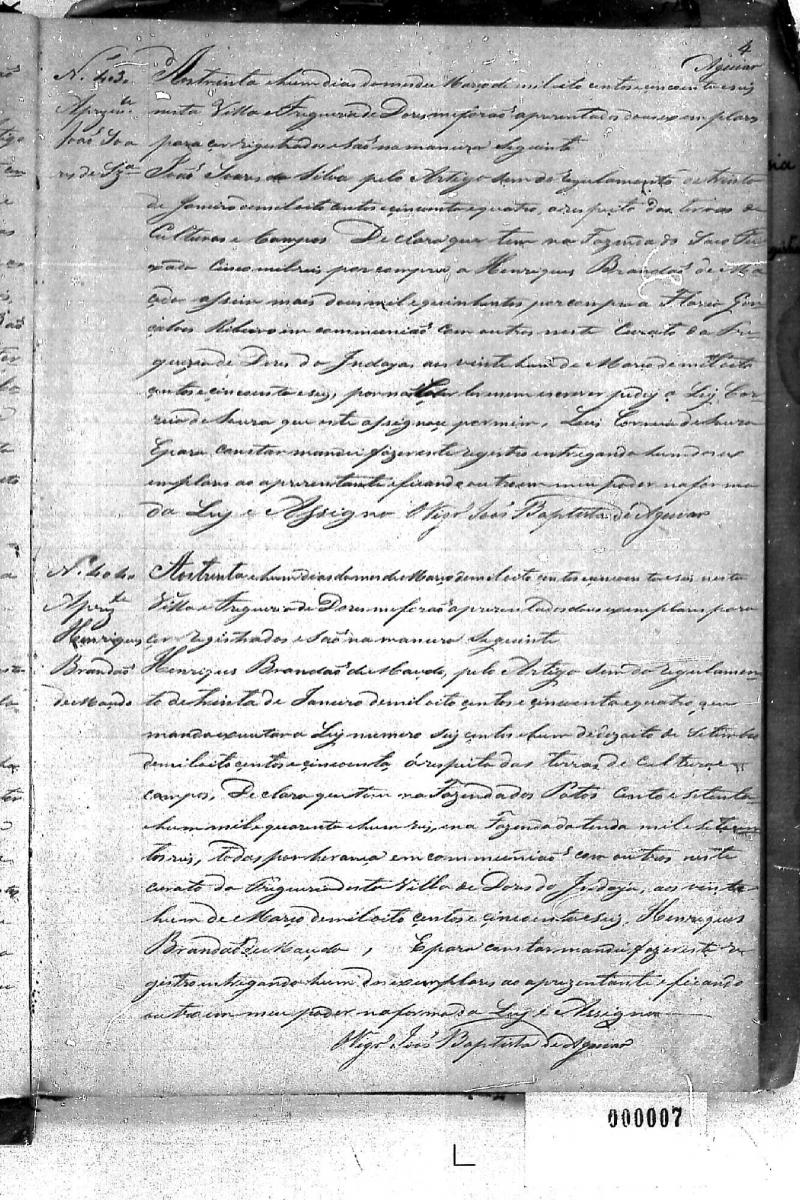 4
Aguiar
N. 403. Aos trinta e hum dias do mes de Março de mil oito centos e cincoenta e seis
Aprezte. nesta Villa e Freguezia de Dores me forão aprezentados dous exemplares
João Soa para ser rigistrados e são na maneira Seguinte
res de Sa. João Soares da Silva pelo Artigo Sem do regulamento de trinta
de Janeiro demil oito centos e cincoenta e quatro, a respeito das terras de
Culturas e Campos Declara que tem na Fazenda do Saco Fe
xado Cinco mil reis por compra a Henriques Brandão de Ma
cedo assim mais dous mil e quinhentos por compra a Flavio Gon
çalves Ribeiro em communião com outros neste Curato da Fre
guezia de Dores do Indaja, aos vinte hum de Março de mil oito
centos e cincoenta e seis, por não saber ler nem escrever pedi a Luis Cor
reia de Souza que este assignace por mim, Luis Correia de Souza
E para constar mandei fazer este registro entregando hum dos ex
emplares ao aprezentante e ficando outro em meu poder na forma
da Ley e Assigno O Vigro. João Baptista de Aguiar
N. 404. Aos trinta e hum dias do mes de Março demil oito centos e cincoenta e seis nesta
Aprezte. Villa e Freguezia de Dores me forão aprezentados dous exemplares para
Henriques ser registrados e são na maneira Seguinte
Brandão Henriques Brandão de Macedo, pelo Artigo Sem do regulamen
de Macedo to de trinta de Janeiro demil oito centos e cincoenta e quatro que
manda executar a Ley numero Seis centos e hum de dezoito de Setembro
demil oito centos e cincoenta, á respeito das terras de culturas e
campos, Declara que tem na Fazenda dos Patos cento e setenta
e hum mil e quarenta e hum reis, e na Fazenda da tenda mil e setecen
tos reis, todas por herança em communião com outros neste
curato da Freguezia desta Villa de Dores do Indaja, aos vinte
hum de Março demil oito centos e cincoenta e seis, Henriques
Brandão de Macedo, E para constar mandei fazer este re
gistro entregando hum dos exemplares ao aprezentante e ficando
outro em meu poder na forma da Ley e Assigno
O Vigro. João Baptista de Aguiar
000007